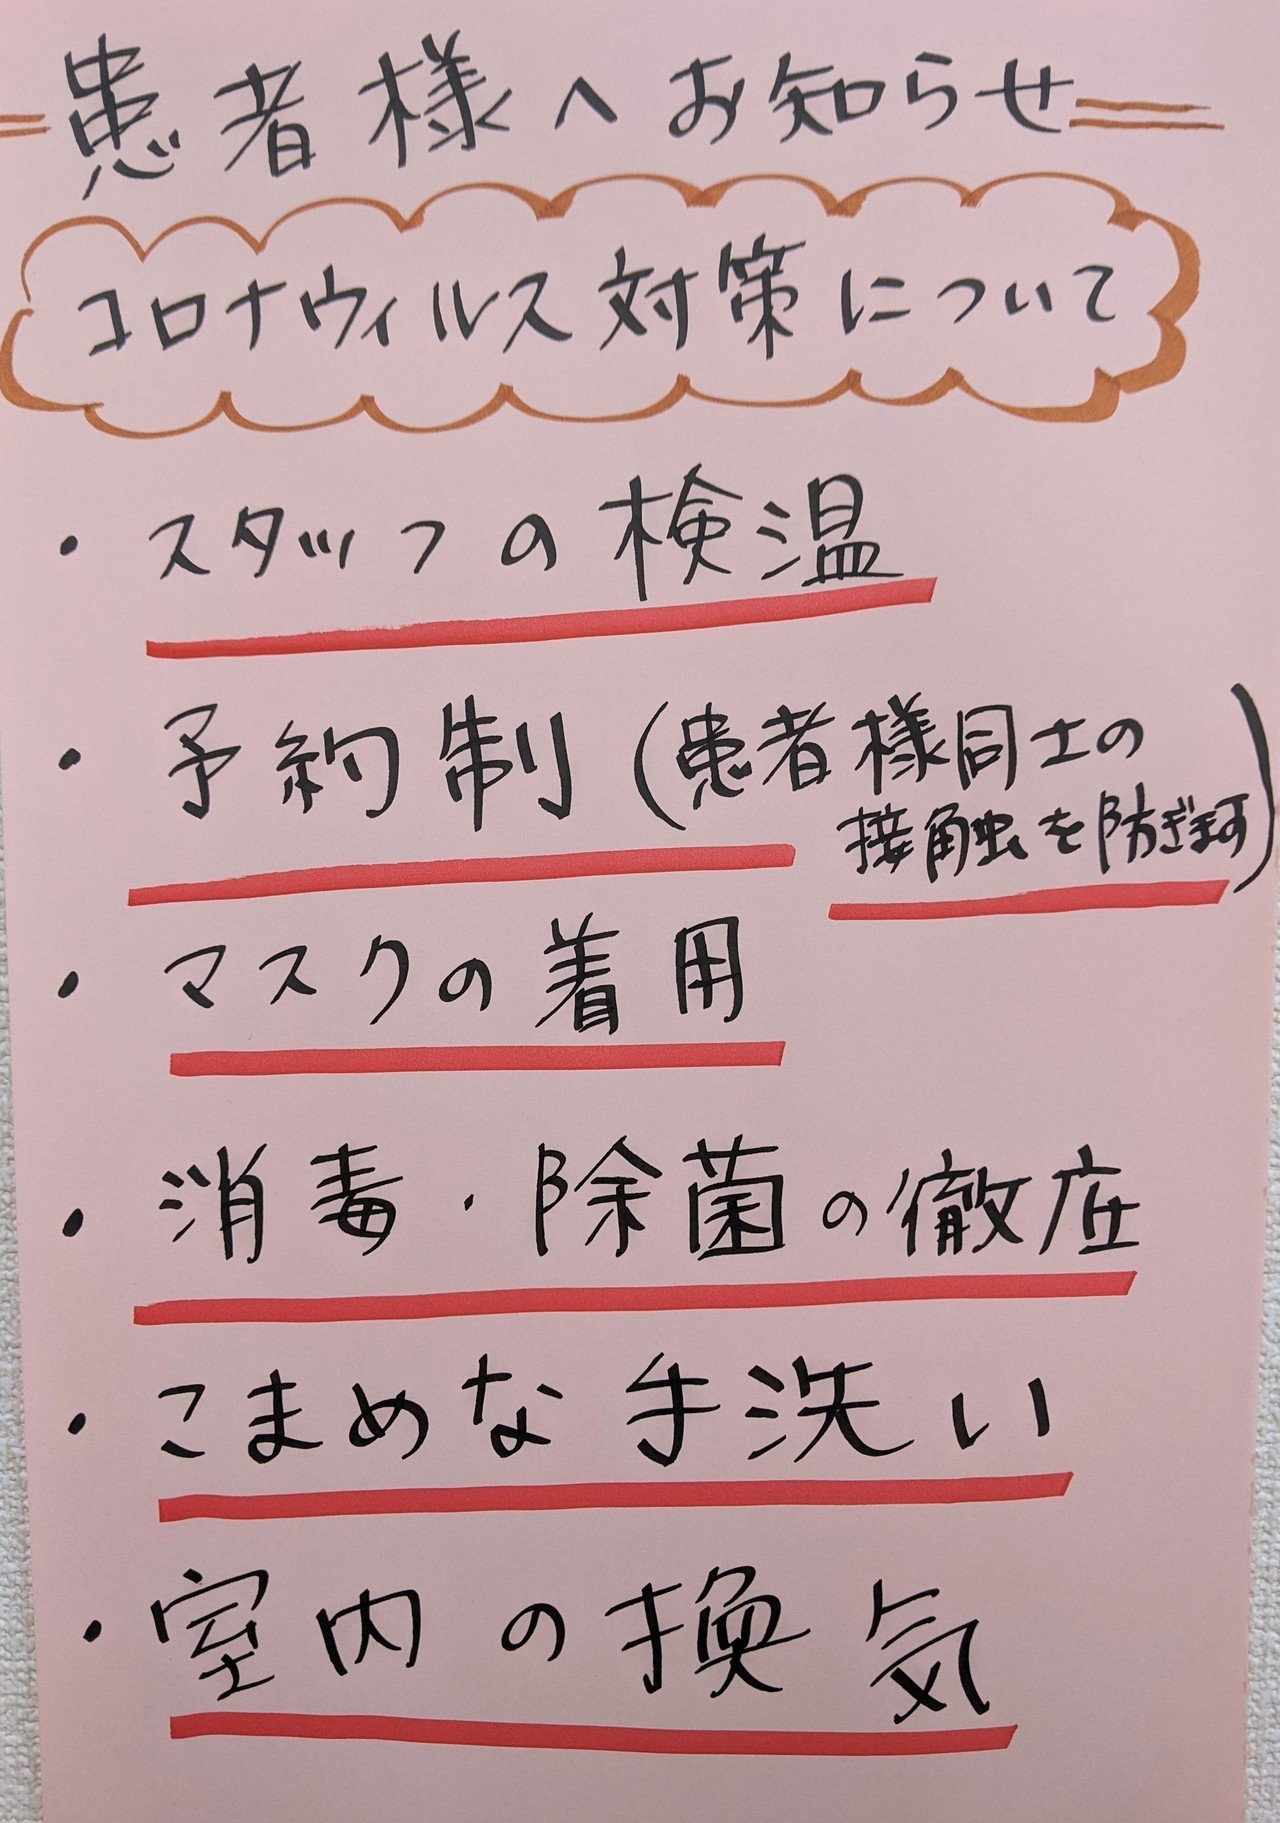 患者様へお知らせ
コロナウィルス対策について
・スタッフの検温
・予約制(患者様同士の
接触を防ぎます)
・マスクの着用
・消毒・除菌の徹底
・こまめな手洗い
・室内の換気